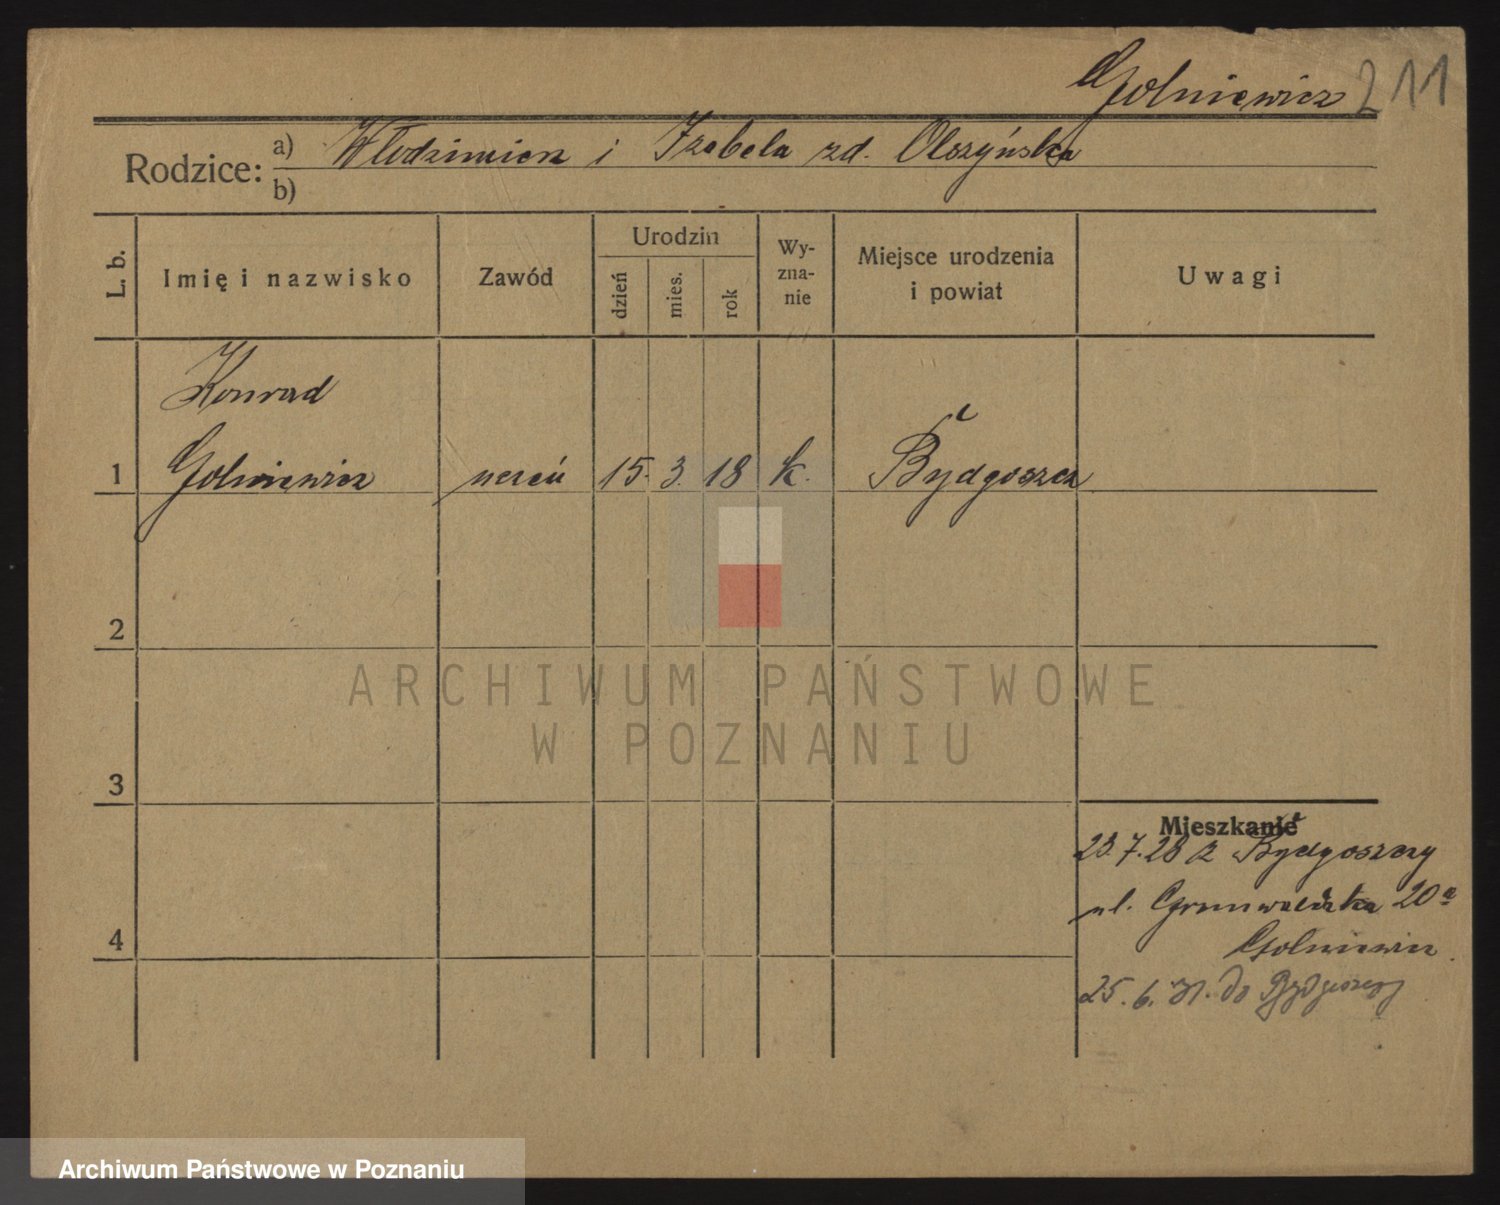 Golniewicz 211
Rodzice: a) Włodzimierz i Izabela zd. Olszyńska
b)
L. b.
Imię i nazwisko
Zawód
Urodzin
dzień
mies.
rok
Wy-
zna-
nie
Miejsce urodzenia
i powiat
Uwagi
Konrad
1 Golniewicz uczeń 15. 3. 18 k. Bydgoszcz
2
ARCHIWUM PAŃSTWOWE
W POZNANIU
3
Mieszkanie
23.7.28 z Bydgoszczy
ul. Grunwaldzka 20a
4
Golniewicz
25.6.31. do Bydgoszczy
Archiwum Państwowe w Poznaniu